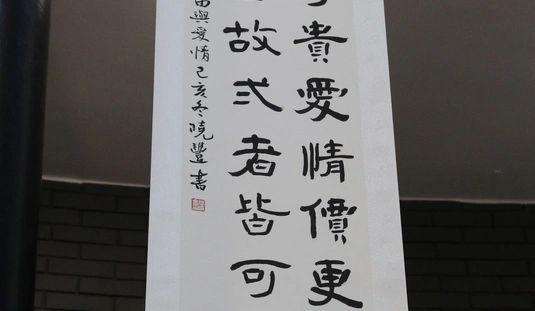 貴愛情價更
故弍者皆可
由與愛情己亥冬曉豐書